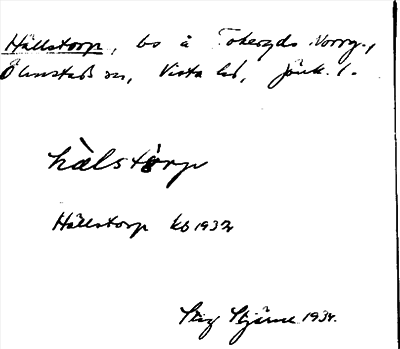 Hällstorp, bo å Tokeryds Norrg.,
Ölmstad sn, Vista hd, Jönk. l.
hàlstòrp
Hällstorp kb 1932
Stig Stjärne 1934.